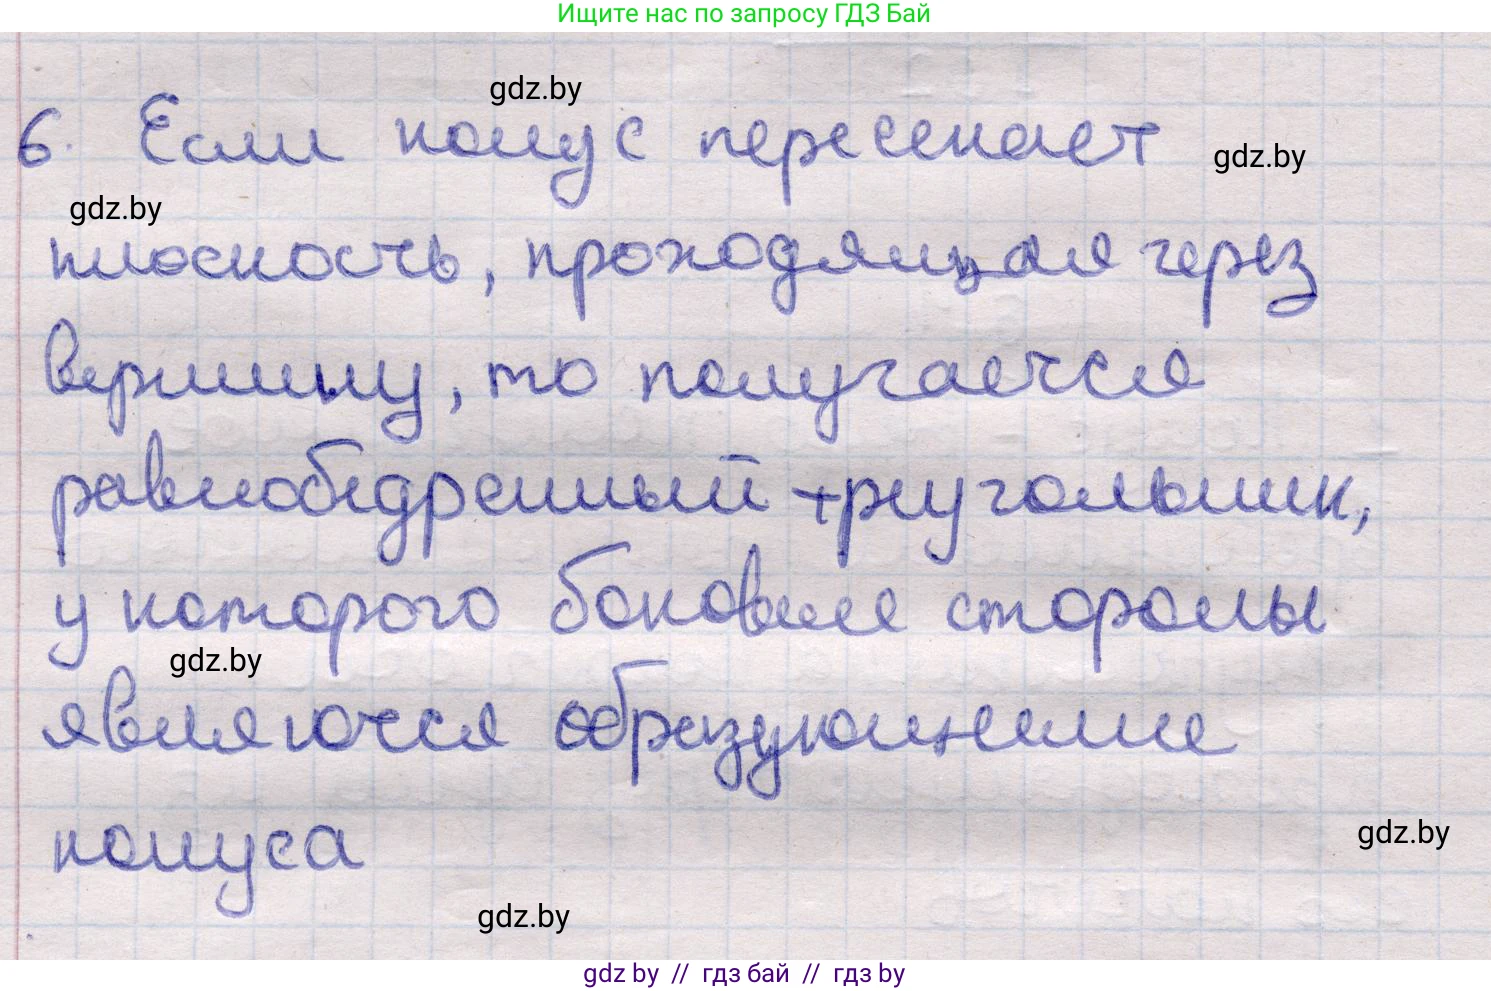 Ищите нас по запросу ГДЗ Бай
gdz.by
6. Если конус пересекает
gdz.by
gdz.by
плоскость, проходящая через
вершину, то получается
равнобедренный треугольник,
у которого боковые стороны
gdz.by
являются образующими
конуса
gdz.by
gdz.by
gdz by // гдз бай // гдз by